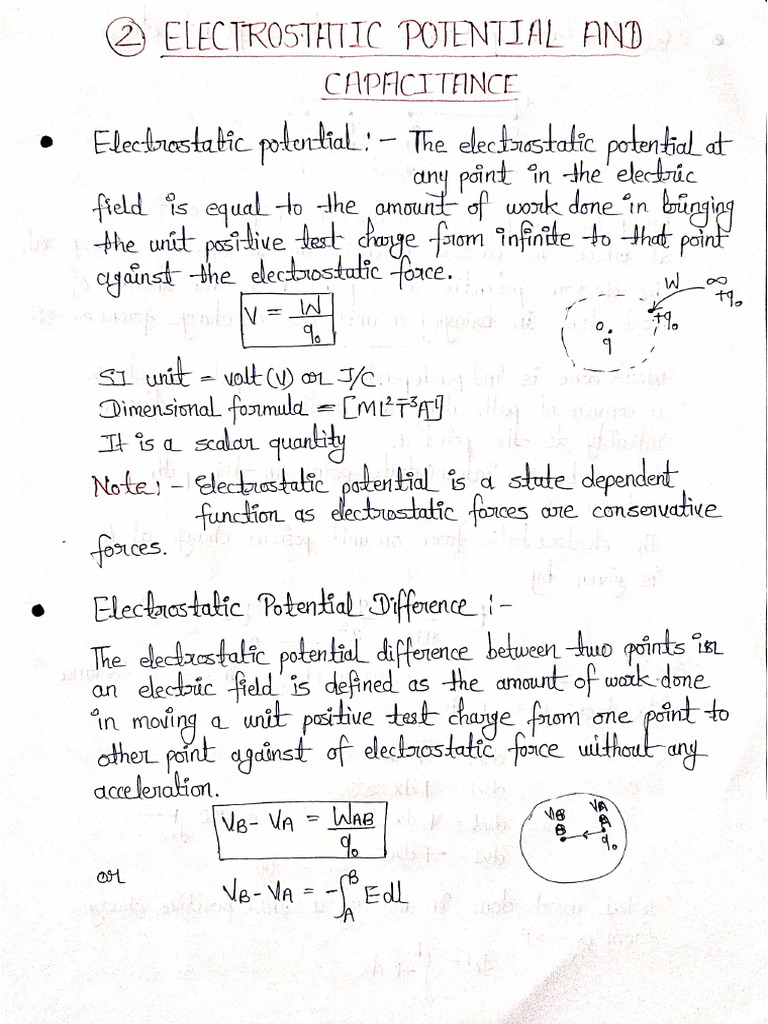 ② ELECTROSTATIC POTENTIAL AND
CAPACITANCE
• Electrostatic potential :- The electrostatic potential at
any point in the electric
field is equal to the amount of work done in bringing
the unit positive test charge from infinite to that point
against the electrostatic force.
V = W/q₀
W ∞
+q₀
+q₀
o.
q
SI unit = volt (V) or J/C
Dimensional formula = [ML²T⁻³A⁻¹]
It is a scalar quantity
Note :- Electrostatic potential is a state dependent
function as electrostatic forces are conservative
forces.
• Electrostatic Potential Difference :-
The electrostatic potential difference between two points in
an electric field is defined as the amount of work done
in moving a unit positive test charge from one point to
other point against of electrostatic force without any
acceleration.
V_B - V_A = W_AB/q₀
V_B V_A
B A
q₀
or
V_B - V_A = -∫_A^B E dl